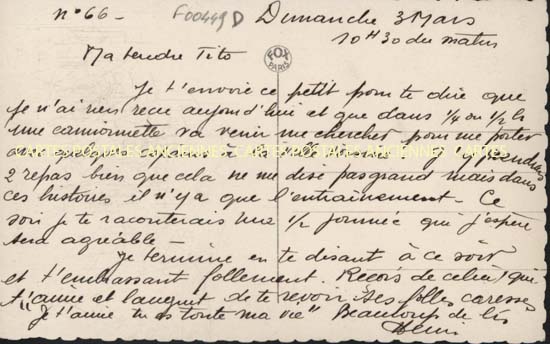 n° 66 -
F00449D
Dimanche 3 Mars
10H30 du matin
Ma tendre Tito
FOX
PARIS
Je t'envoie ce petit pour te dire que
je n'ai rien reçu aujourd'hui et que dans 1/4 ou 1/2 h
une camionnette va venir me chercher pour me porter
avec quelques
CARTES POSTALES ANCIENNES CARTES POSTALES ANCIENNES CARTES
2 repas bien que cela ne me dise pas grand mais dans
ces histoires il n'y a que l'entraînement - Ce
soir je te raconterais une 1/2 journée que j'espère
sera agréable -
Je termine en te disant à ce soir
et t'embrassant follement. Reçois de celui qui
t'aime et languit de te revoir ses folles caresses
"Je t'aime tu es toute ma vie" Beaucoup de